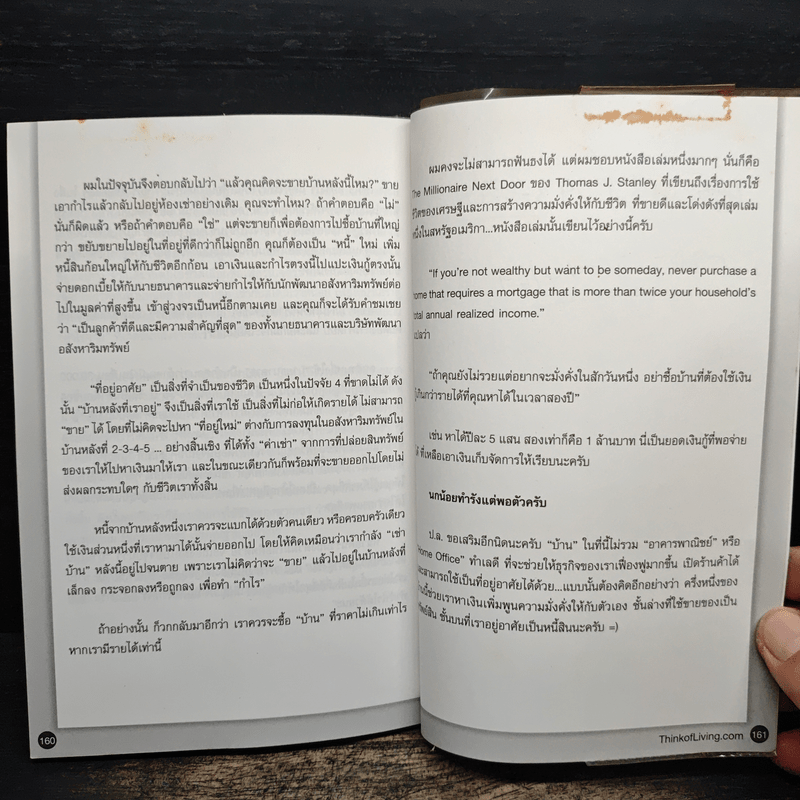 ผมในปัจจุบันจึงตอบกลับไปว่า "แล้วคุณคิดจะขายบ้านหลังนี้ไหม?" ขาย
เอากำไรแล้วกลับไปอยู่ห้องเช่าอย่างเดิม คุณจะทำไหม? ถ้าคำตอบคือ "ไม่"
นั่นก็ผิดแล้ว หรือถ้าคำตอบคือ "ใช่" แต่จะขายก็เพื่อต้องการไปซื้อบ้านที่ใหญ่
กว่า ขยับขยายไปอยู่ในที่อยู่ที่ดีกว่าก็ไม่ถูกอีก คุณก็ต้องเป็น "หนี้" ใหม่ เพิ่ม
หนี้สินก้อนใหญ่ให้กับชีวิตอีกก้อน เอาเงินและกำไรตรงนี้ไปแปะเงินกู้ตรงนั้น
จ่ายดอกเบี้ยให้กับนายธนาคารและจ่ายกำไรให้กับนักพัฒนาอสังหาริมทรัพย์ต่อ
ไปในมูลค่าที่สูงขึ้น เข้าสู่วงจรเป็นหนี้อีกตามเคย และคุณก็จะได้รับคำชมเชย
ว่า "เป็นลูกค้าที่ดีและมีความสำคัญที่สุด" ของทั้งนายธนาคารและบริษัทพัฒนา
อสังหาริมทรัพย์
"ที่อยู่อาศัย" เป็นสิ่งที่จำเป็นของชีวิต เป็นหนึ่งในปัจจัย 4 ที่ขาดไม่ได้ ดัง
นั้น "บ้านหลังที่เราอยู่" จึงเป็นสิ่งที่เราใช้ เป็นสิ่งที่ไม่ก่อให้เกิดรายได้ ไม่สามารถ
"ขาย" ได้ โดยที่ไม่คิดจะไปหา "ที่อยู่ใหม่" ต่างกับการลงทุนในอสังหาริมทรัพย์ใน
บ้านหลังที่ 2-3-4-5 ... อย่างสิ้นเชิง ที่ได้ทั้ง "ค่าเช่า" จากการที่ปล่อยสินทรัพย์
ของเราให้ไปหาเงินมาให้เรา และในขณะเดียวกันก็พร้อมที่จะขายออกไปโดยไม่
ส่งผลกระทบใดๆ กับชีวิตเราทั้งสิ้น
หนี้จากบ้านหลังหนึ่งเราควรจะแบกได้ด้วยตัวคนเดียว หรือครอบครัวเดียว
ใช้เงินส่วนหนึ่งที่เราหามาได้นั้นจ่ายออกไป โดยให้คิดเหมือนว่าเรากำลัง "เช่า
บ้าน" หลังนี้อยู่ไปจนตาย เพราะเราไม่คิดว่าจะ "ขาย" แล้วไปอยู่ในบ้านหลังที่
เล็กลง กระจอกลงหรือถูกลง เพื่อทำ "กำไร"
ถ้าอย่างนั้น ก็วกกลับมาอีกว่า เราควรจะซื้อ "บ้าน" ที่ราคาไม่เกินเท่าไร
หากเรามีรายได้เท่านี้
160
ผมคงจะไม่สามารถฟันธงได้ แต่ผมชอบหนังสือเล่มหนึ่งมากๆ นั่นก็คือ
The Millionaire Next Door ของ Thomas J. Stanley ที่เขียนถึงเรื่องการใช้
ชีวิตของเศรษฐีและการสร้างความมั่งคั่งให้กับชีวิต ที่ขายดีและโด่งดังที่สุดเล่ม
หนึ่งในสหรัฐอเมริกา...หนังสือเล่มนั้นเขียนไว้อย่างนี้ครับ
"If you're not wealthy but want to be someday, never purchase a
home that requires a mortgage that is more than twice your household's
total annual realized income."
แปลว่า
"ถ้าคุณยังไม่รวยแต่อยากจะมั่งคั่งในสักวันหนึ่ง อย่าซื้อบ้านที่ต้องใช้เงิน
กู้เกินกว่ารายได้ที่คุณหาได้ในเวลาสองปี"
เช่น หาได้ปีละ 5 แสน สองเท่าก็คือ 1 ล้านบาท นี่เป็นยอดเงินกู้ที่พอจ่าย
ได้ ที่เหลือเอาเงินเก็บจัดการให้เรียบนะครับ
นกน้อยทำรังแต่พอตัวครับ
ป.ล. ขอเสริมอีกนิดนะครับ "บ้าน" ในที่นี้ไม่รวม "อาคารพาณิชย์" หรือ
"Home Office" ทำเลดี ที่จะช่วยให้ธุรกิจของเราเฟื่องฟูมากขึ้น เปิดร้านค้าได้
และสามารถใช้เป็นที่อยู่อาศัยได้ด้วย...แบบนั้นต้องคิดอีกอย่างว่า ครึ่งหนึ่งของ
บ้านนี้ช่วยเราหาเงินเพิ่มพูนความมั่งคั่งให้กับตัวเอง ชั้นล่างที่ใช้ขายของเป็น
ทรัพย์สิน ชั้นบนที่เราอยู่อาศัยเป็นหนี้สินนะครับ =)
ThinkofLiving.com 161